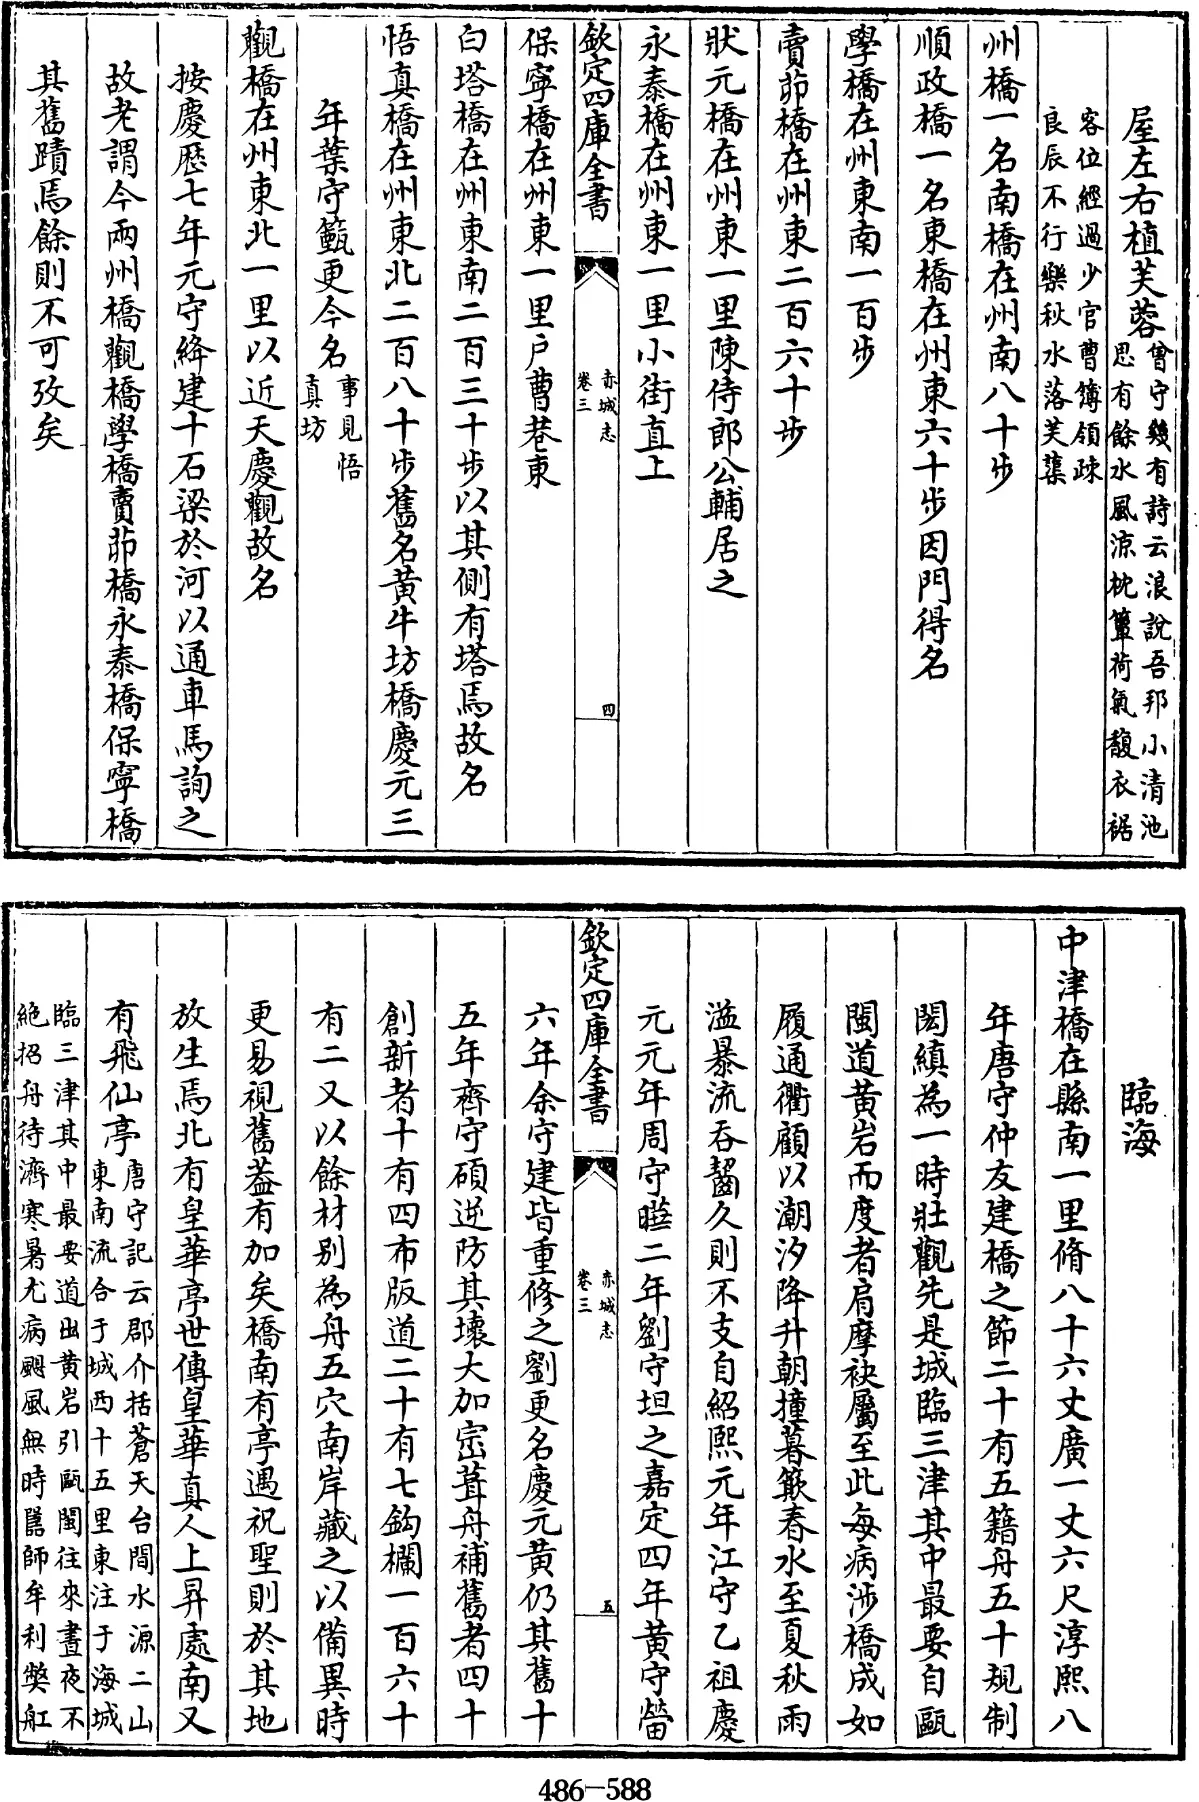 屋左右植芙蓉曾守幾有詩云浪說吾邦小清池思有餘水風涼枕簟荷氣馥衣裾
客位經過少官曹簿領疎良辰不行樂秋水落芙蕖
州橋一名南橋在州南八十步
順政橋一名東橋在州東六十步因門得名
學橋在州東南一百步
賣茆橋在州東二百六十步
狀元橋在州東一里陳侍郎公輔居之
永泰橋在州東一里小街直上
欽定四庫全書
赤城志
卷三
四
保寧橋在州東一里户曹巷東
白塔橋在州東南二百三十步以其側有塔焉故名
悟真橋在州東北二百八十步舊名黄牛坊橋慶元三
年葉守籈更今名事見悟真坊
觀橋在州東北一里以近天慶觀故名
按慶歴七年元守絳建十石梁於河以通車馬詢之
故老謂今兩州橋觀橋學橋賣茆橋永泰橋保寧橋
其舊蹟焉餘則不可攷矣
臨海
中津橋在縣南一里脩八十六丈廣一丈六尺淳熙八
年唐守仲友建橋之節二十有五籍舟五十規制
閎縝為一時壯觀先是城臨三津其中最要自甌
閩道黄岩而度者肩摩袂屬至此每病涉橋成如
履通衢顧以潮汐降升朝撞暮簸春水至夏秋雨
溢暴流吞齧久則不支自紹熙元年江守乙祖慶
元元年周守曄二年劉守坦之嘉定四年黄守㽦
欽定四庫全書
赤城志
卷三
五
六年余守建皆重修之劉更名慶元黄仍其舊十
五年齊守碩逆防其壞大加宻葺舟補舊者四十
創新者十有四布版道二十有七鈎欄一百六十
有二又以餘材别為舟五穴南岸藏之以備異時
更易視舊葢有加矣橋南有亭遇祝聖則於其地
放生焉北有皇華亭世傳皇華真人上昇處南又
有飛仙亭唐守記云郡介括蒼天台間水源二山東南流合于城西十五里東注于海城
臨三津其中最要道出黄岩引甌閩往來晝夜不絶招舟待濟寒暑尤病颶風無時篙師牟利獘舡
486-588